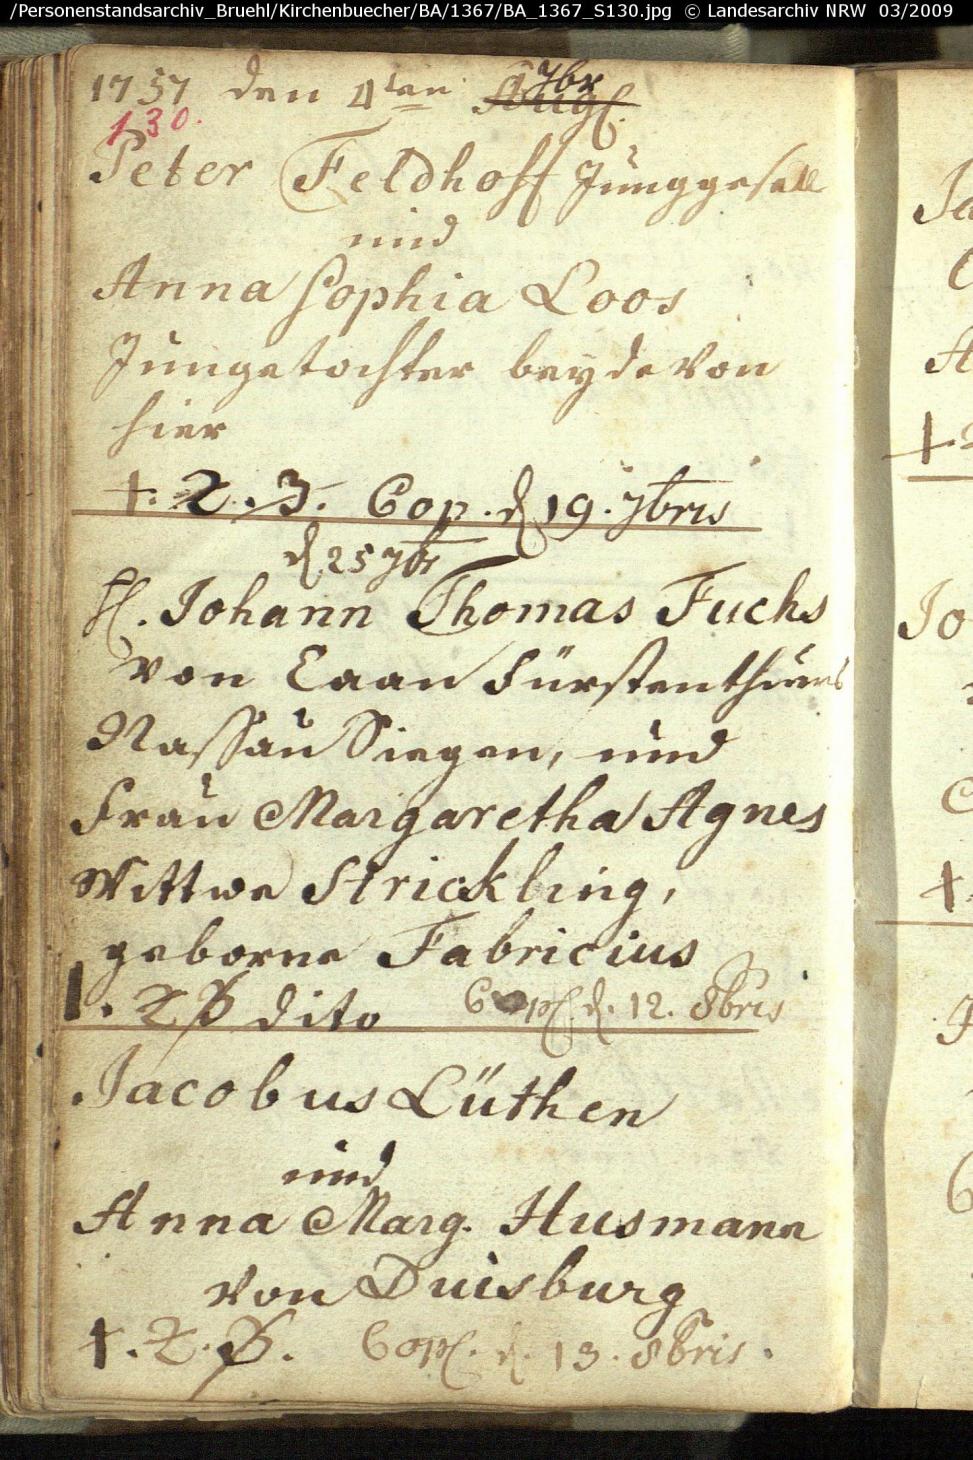 /Personenstandsarchiv_Bruehl/Kirchenbuecher/BA/1367/BA_1367_S130.jpg © Landesarchiv NRW 03/2009
1757 den 4ten Aug. 7br
130.
Peter Feldhoff Junggesell
und
Anna Sophia Loos
Jungetochter beyde von
hier
1. 2. 3. Cop. d 19. 7bris
d. 25 7br
H. Johann Thomas Fuchs
von Caan Fürstenthums
Nassau Siegen, und
Frau Margaretha Agnes
Wittwe Strickling,
geborne Fabricius
1. 2 3 dito Cop. d. 12. 8bris
Jacobus Lüthen
und
Anna Marg. Husmann
von Duisburg
1. 2. 3. Cop. d. 13. 8bris.